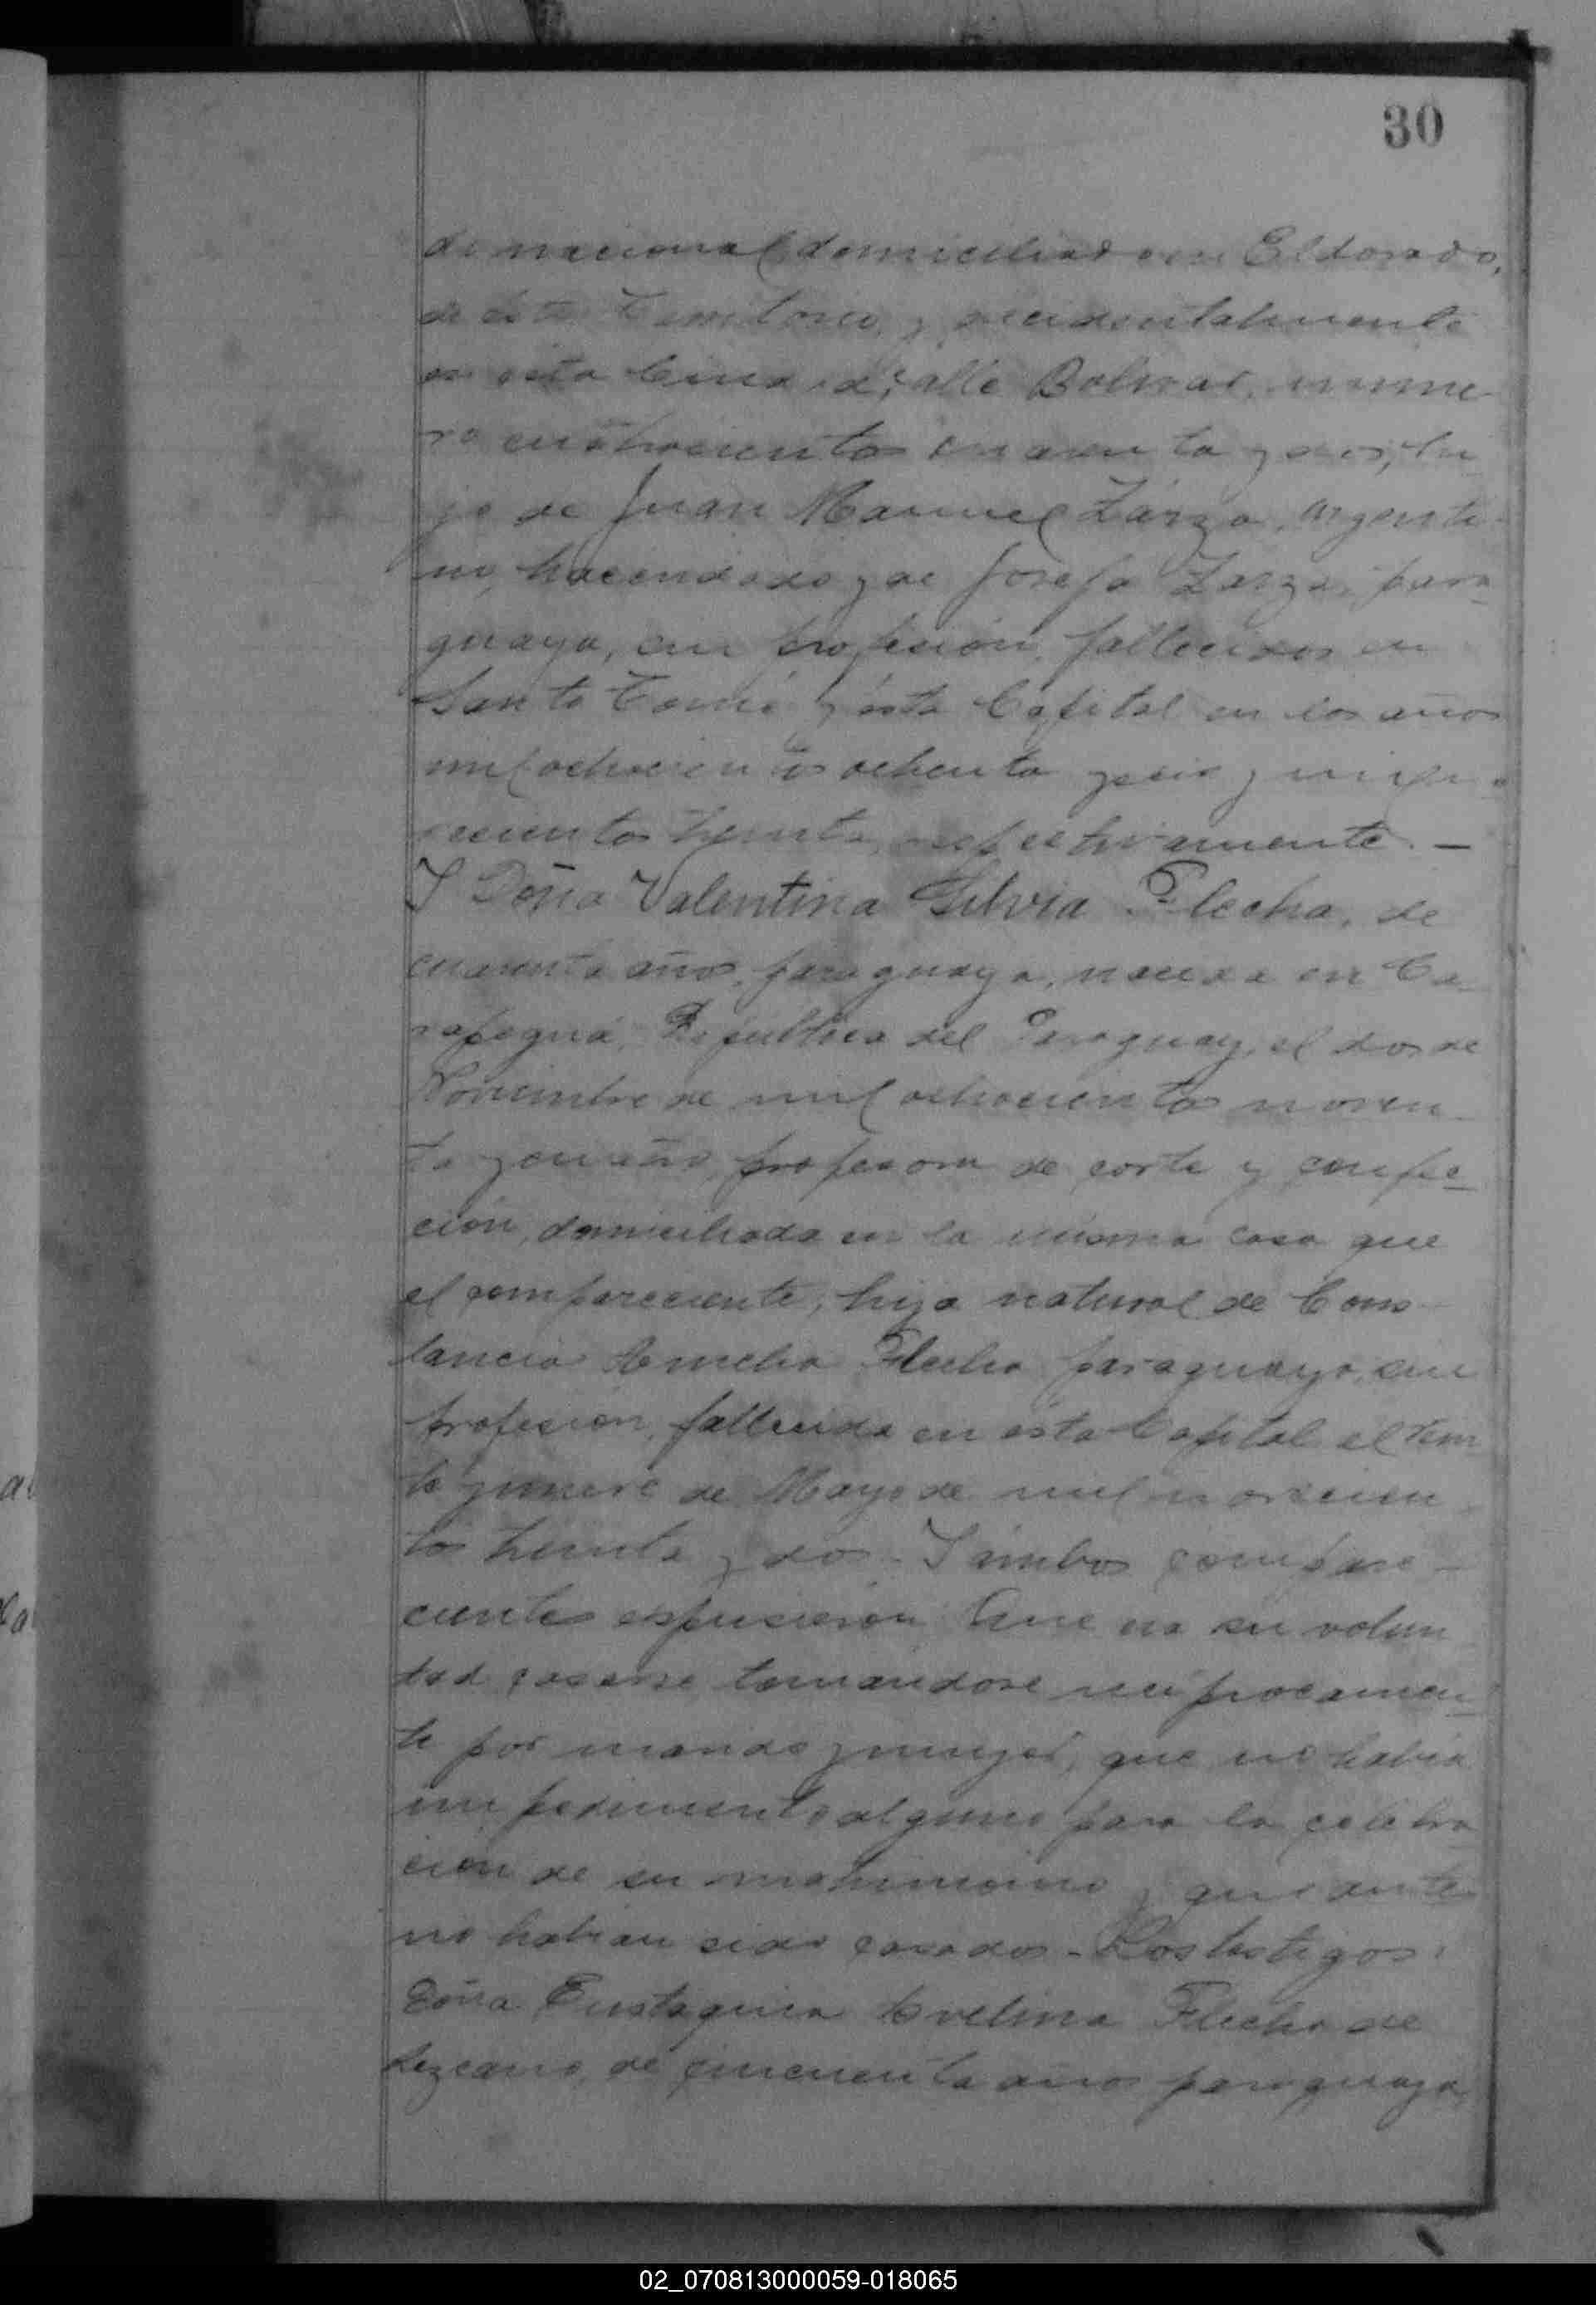 30
de nacional domiciliado en Eldorado,
de este Territorio, y accidentalmente
en esta Ciudad, calle Bolivar, núme
ro cuatrocientos y seis, hi
jo de Juan Manuel Zárza, argenti-
no, hacendado y de Josefa Zarza, para
guaya, sin profesión, fallecidos en
Santo Tomé y ésta Capital en los años
mil ochocientos ochenta y seis y mil no
vecientos treinta, respectivamente. —
Y Doña Valentina Silvia Flecha, de
cuarenta años, paraguaya, nacida en Ca-
rapeguá, República del Paraguay, el dos de
Noviembre de mil ochocientos noven-
ta y profesora de corte y confec-
ción, domiciliada en la misma casa que
el compareciente, hija natural de Cons-
tancia Amelia Flecha paraguaya, sin
profesión, fallecida en ésta Capital el trein
ta y nueve de Mayo de mil novecien
tos treinta y dos - Y ámbos compare-
cientes espusieron: Que era su volun
tad casarse tomándose recíprocamen-
te por marido y mujer, que no había
impedimento alguno para la celebra
ción de su matrimonio y que antes
no habían sido casados - Los testigos:
Doña Eustaquia Evelina Flecha de
Lezcano, de cincuenta años paraguaya,
02_070813000059-018065